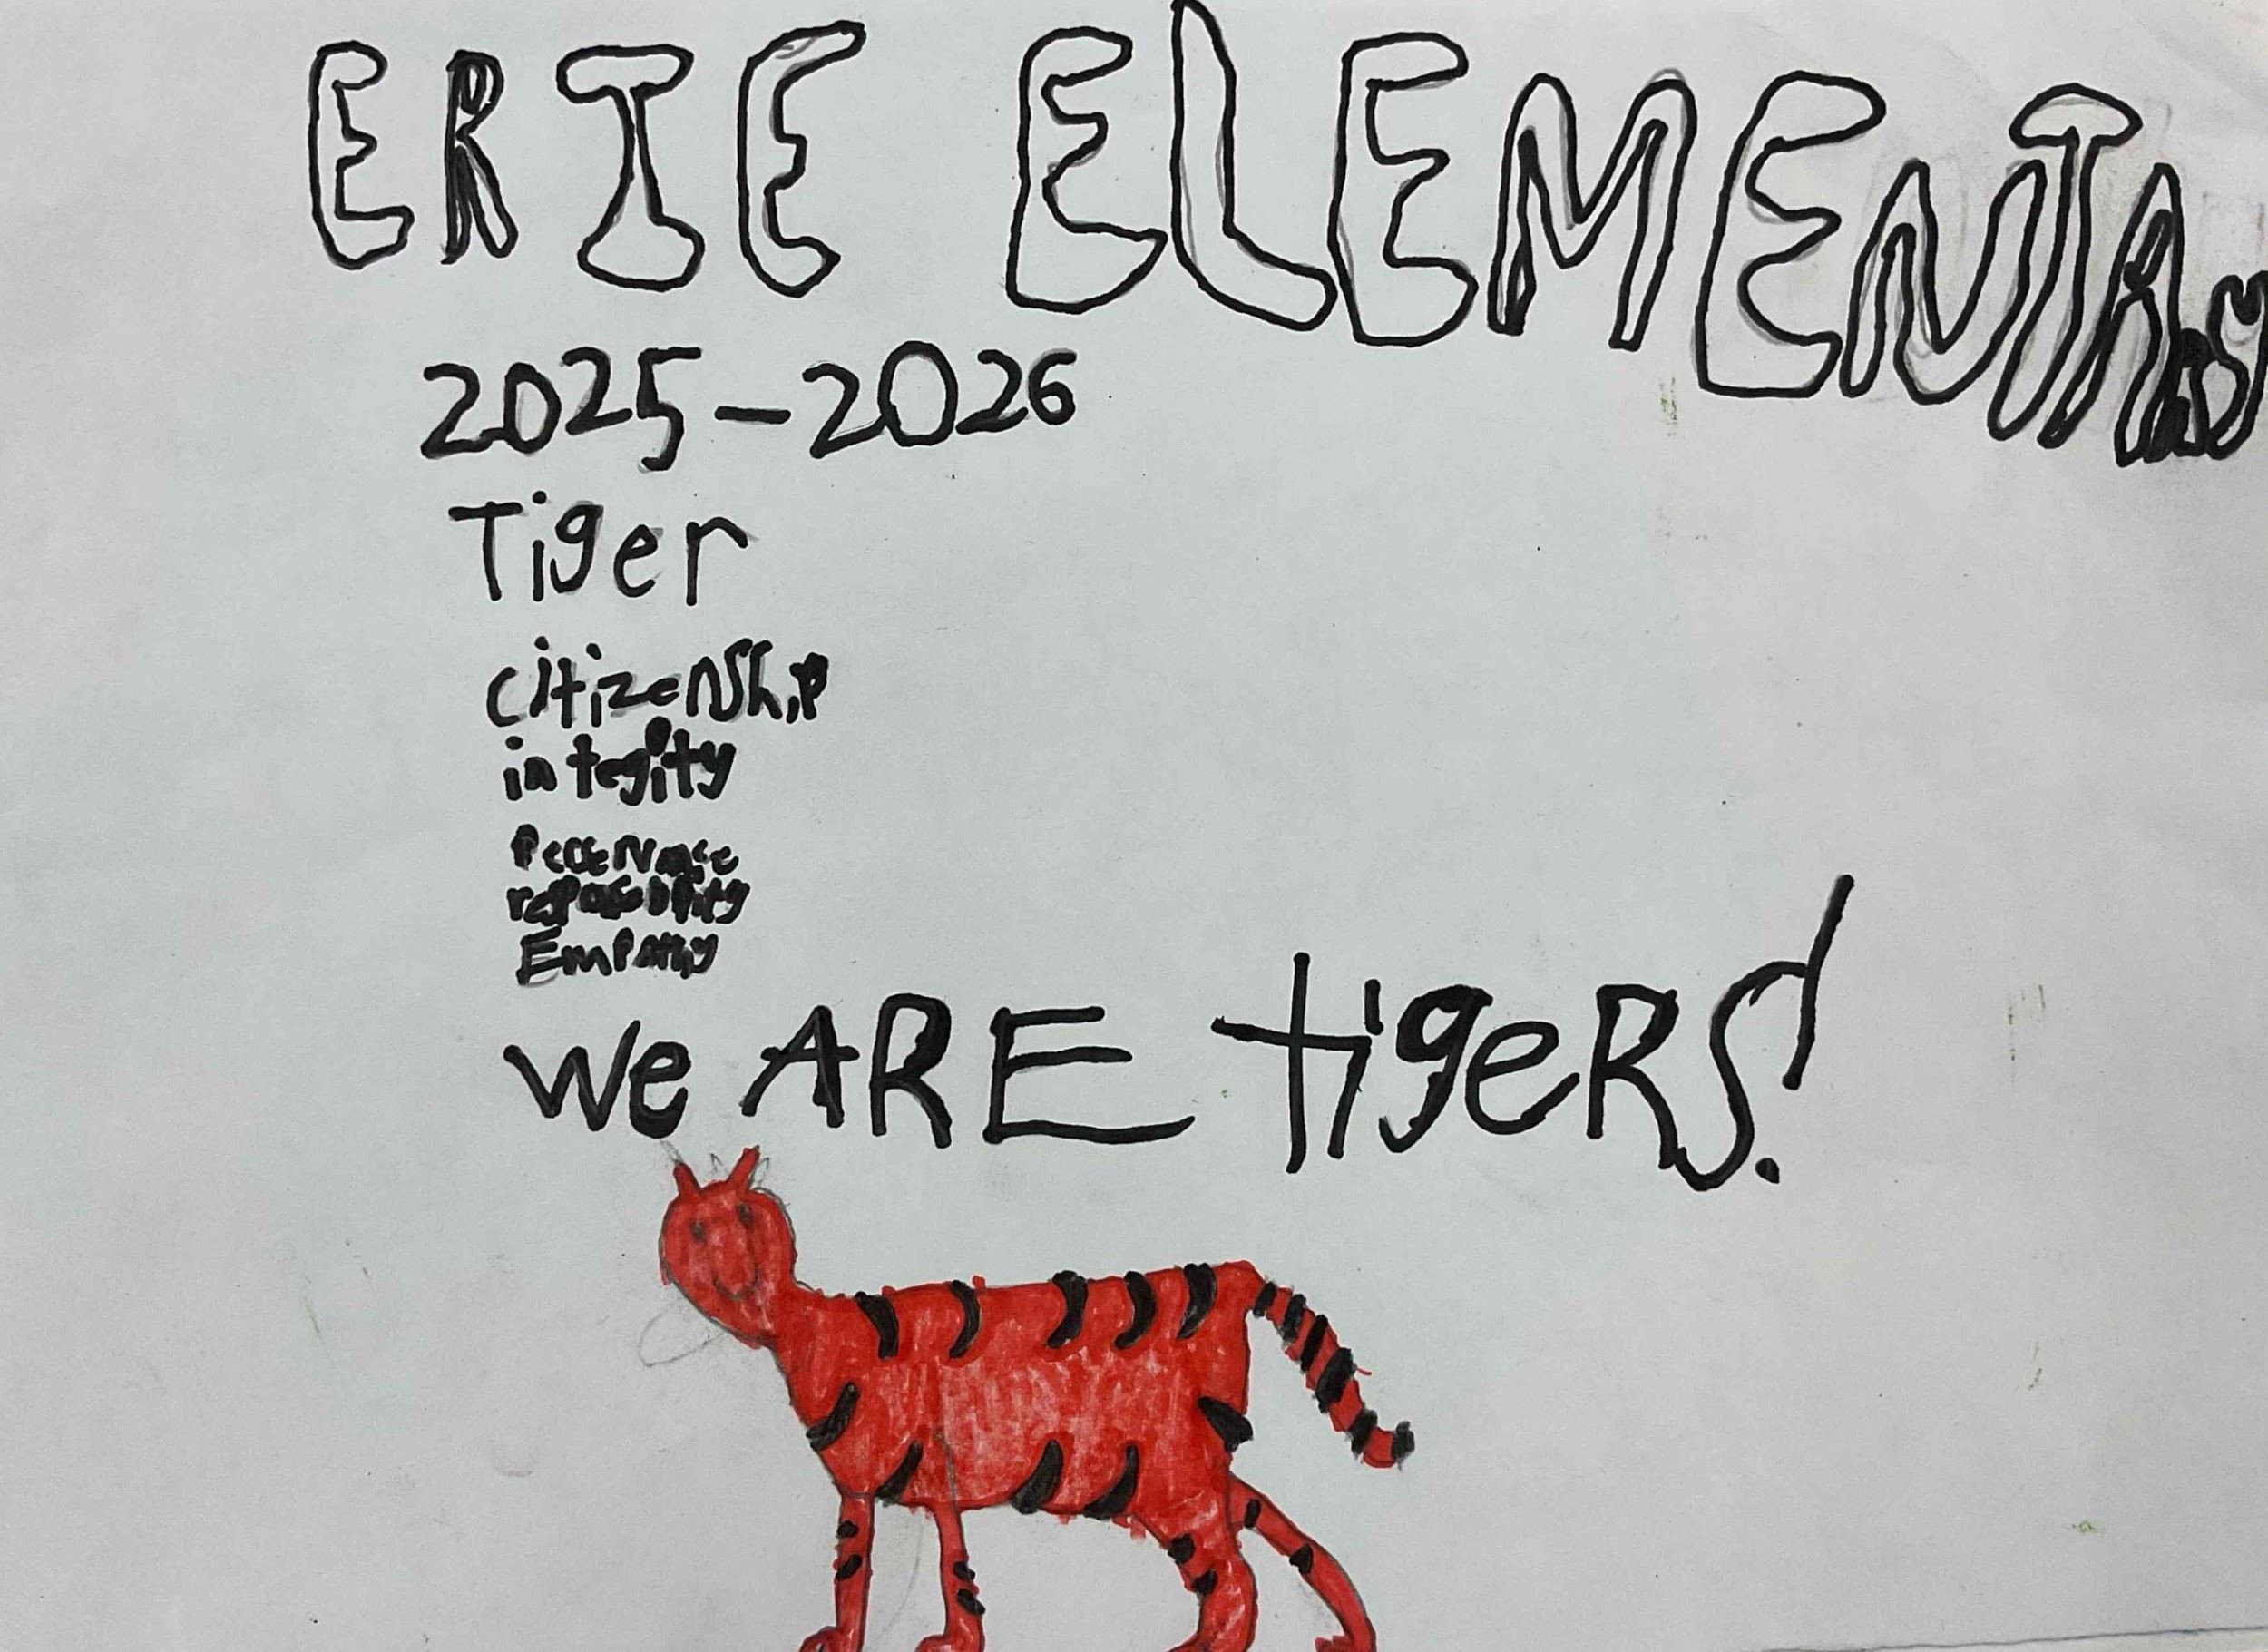 ERIE ELEMENTARY
2025-2026
Tiger
citizenship
integity
Empathy
we ARE tigeRS!